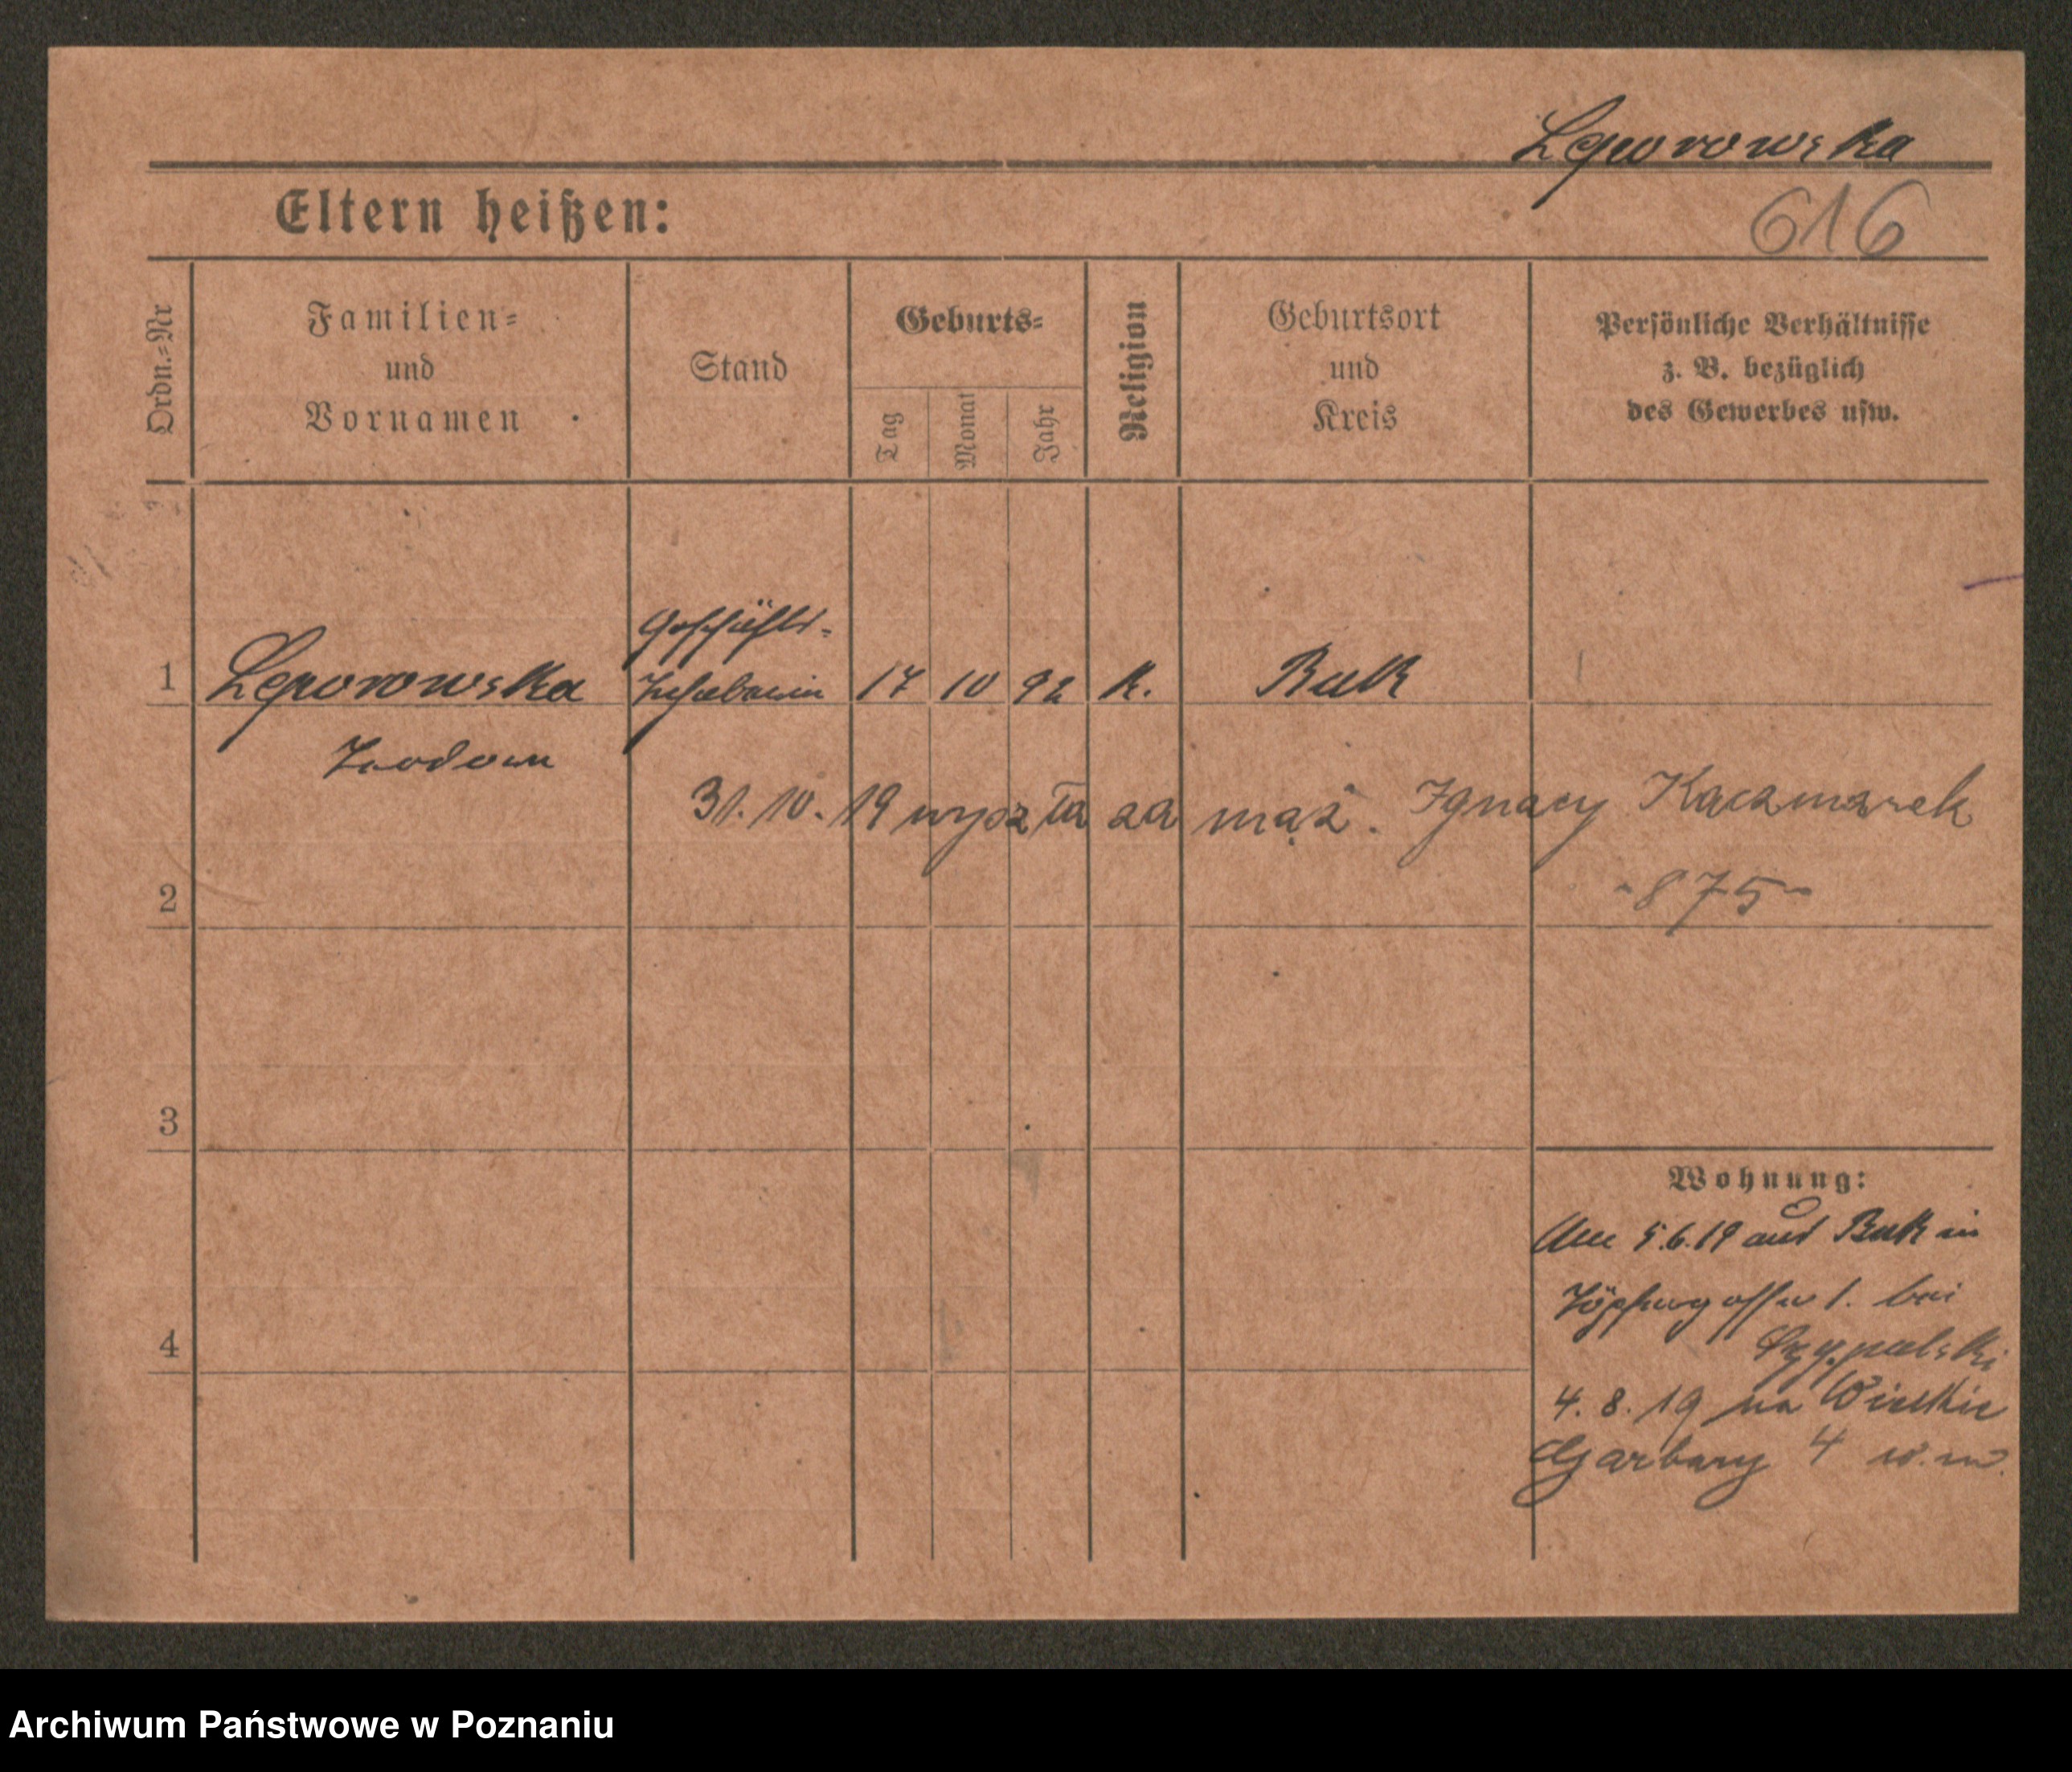 Leporowska
616
Eltern heißen:
Ordn.=Nr
Familien=
und
Vornamen
Stand
Geburts=
Tag
Monat
Jahr
Religion
Geburtsort
und
Kreis
Persönliche Verhältnisse
z. B. bezüglich
des Gewerbes usw.
Geschäfts-
1 Leporowska Inhaberin 17 10 92 K. Buk
31. 10. 19 wyszła za mąż. Ignacy Kaczmarek
2
-875-
3
Wohnung:
5.6.19 aus Buk in
Töpfergasse 1. bei
4
4. 8. 19 na Wielkie
Garbary 4 w. m.
Archiwum Państwowe w Poznaniu